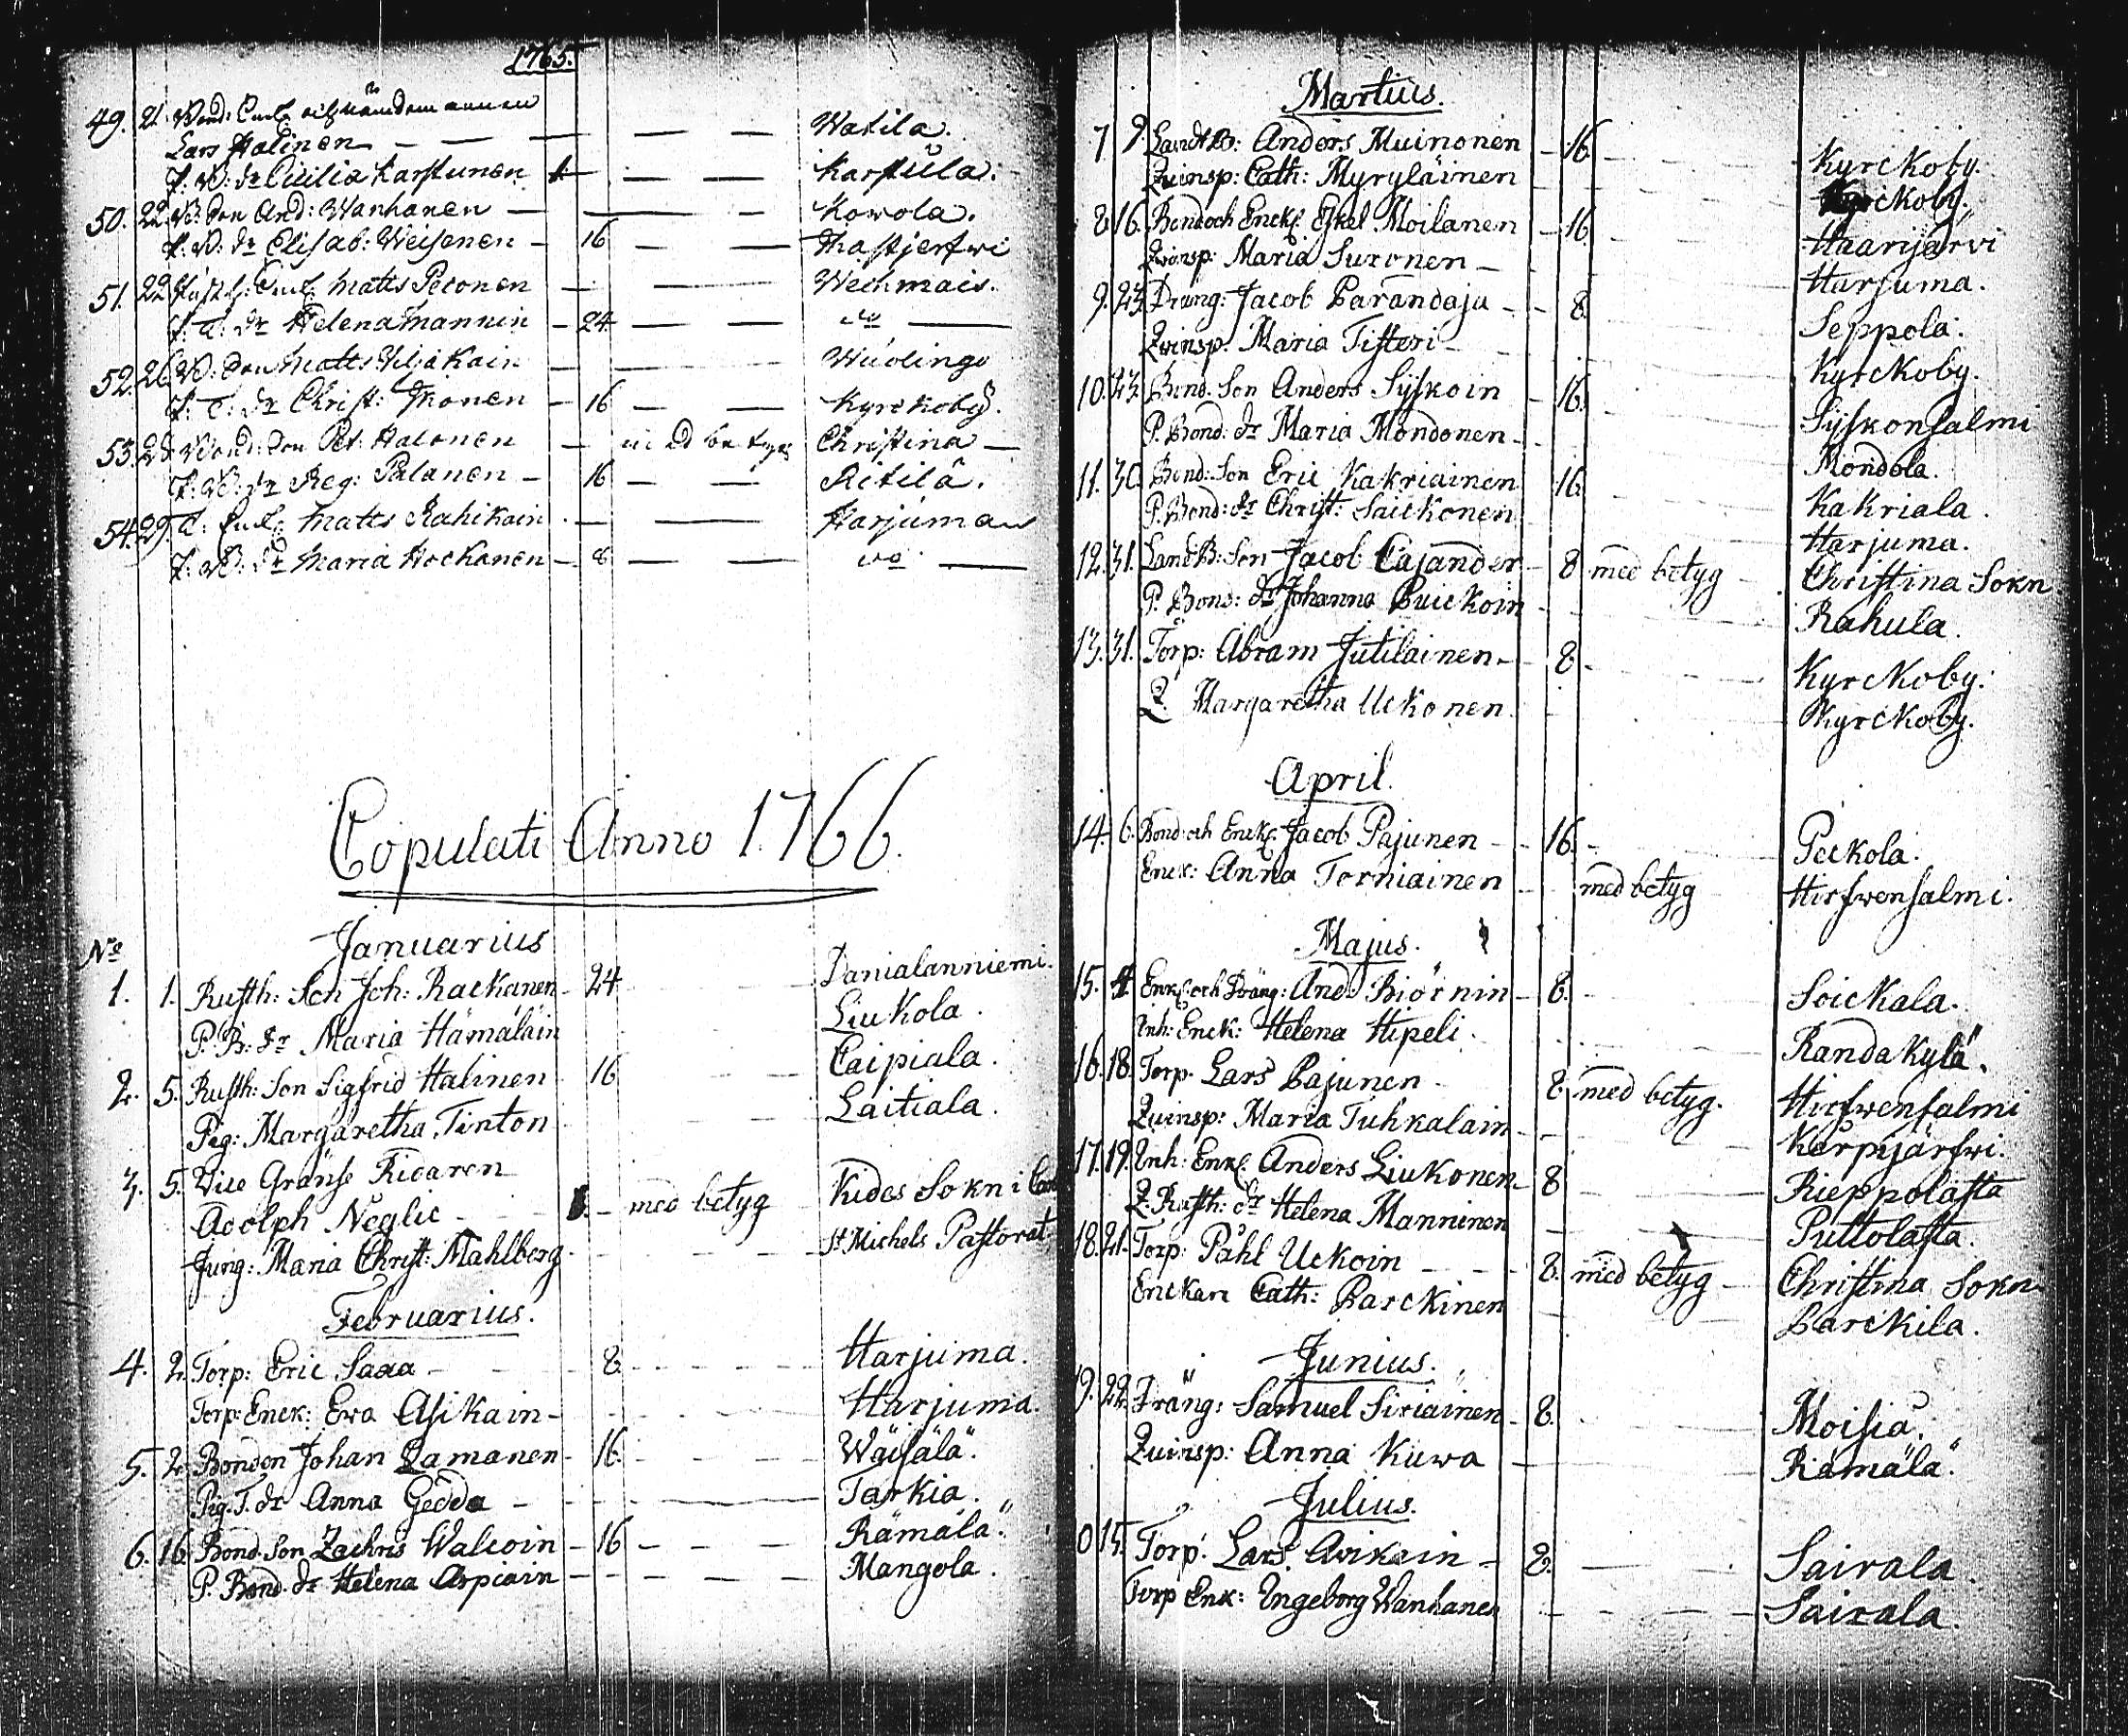 1765.
49. 21. Bond: Enkl. och nämdemannen
Lars Halinen — — — — Watila.
P. B: dr Cicilia Karstunen — — Karstula.
50. 22. B: son And: Wanhanen — — Kowola.
P. B: dr Elisab: Weisenen — 16 — — Thastjerfwi
51. 22. Enkl. Matts Pitonen — — Wechmais.
P. T: dr Helena Mannin — 24 — — do —
52. 26. B: son Matts Viljakain — — Wuolingo
P. T: dr Christ: Ikonen — 16 — — Kyrckoby.
53. 28. Bond: Son Pet: Halonen — med betyg Christina —
P. B: dr Reg: Pulanen — 16 — — Ritilä.
54. 29. T: Enkl. Matts Rahikain — — Harjuma
P. B: dr Maria Hockanen — 8 — — do —
Copulati Anno 1766.
No
Januarius
1. 1. Rusth: Son Joh: Rackanen 24 Danialanniemi.
P. B: dr Maria Hämäläin Liukola.
2. 5. Rusth: Son Sigfrid Halinen 16 Caipiala.
Pig: Margaretha Tinton Laitiala.
3. 5. Vice Gränse Ridaren
Adolph Neglic — 8. — med betyg Kides Sokn i
Jung: Maria Christ: Mahlberg St Michels Pastorat
Februarius.
4. 2. Torp: Eric Saxa — 8. Harjuma.
Torp: Enck: Ewa Asikain — Harjuma.
5. 2. Bonden Johan Lamanen — 16. Wäisälä.
Pig. T. dr Anna Gedda — Tarkia.
6. 16. Bond. Son Zachris Walcoin — 16 — Rämälä.
P. Bond. dr Helena Arpiain — Mangola.
Martius.
7 9 Landt B: Anders Muinonen — 16. Kyrckoby.
Qvinsp: Cath: Myryläinen Kyrckoby.
8. 16. Bond och Enckl. Eskel Moilanen — 16. Haarijärvi
Qvinsp: Maria Suronen — Harjuma.
9. 23. Dräng: Jacob Parandaja — 8. Seppola.
Qvinsp. Maria Tisteri — Kyrckoby.
10. 23. Bond. Son Anders Syskoin — 16. Syskonsalmi
P. Bond: dr Maria Mondonen — Mondola.
11. 30. Bond: Son Eric Kakriainen 16. Kakriala.
P. Bond: dr Christ: Saickonen Harjuma.
12. 31. Landt B: Son Jacob Cajander — 8 med betyg — Christina Sokn
P. Bond: dr Johanna Puickoin Rahula.
13. 31. Torp: Abram Jutilainen — 8. Kyrckoby.
Q. Margaretha Uckonen. Kyrckoby.
April.
14. 6. Bond och Enckl. Jacob Pajunen — 16. Peckola.
Enck: Anna Torniainen — med betyg Hirfwensalmi.
Majus.
15. 4. Enkl. och Dräng: And: Biörnin — 8. Soickala.
Inh: Enck: Helena Hipeli. Randakylä.
16. 18. Torp. Lars Pajunen — 8. med betyg. Hirfwensalmi
Qvinsp: Maria Tuhkalain — Karpijärfwi.
17. 19. Inh: Enkl. Anders Liukonen — 8 Rieppolasta
Q. Rusth: dr Helena Manninen Puttolasta.
18. 21. Torp: Påhl Uckoin — 8. med betyg — Christina Sokn
Enckan Cath: Parckinen Parckila.
Junius.
19. 22. Dräng: Samuel Siriäinen — 8. Moisia.
Qvinsp: Anna Kuwa — Rämälä.
Julius.
0 15. Torp: Lars Avikain — 8. Sairala.
Torp Enk: Ingeborg Wanhanen Sairala.